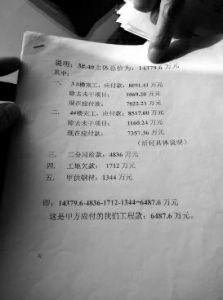 说明：3#.4#主体总价为：14379.6 万元
其中：
一、 3#楼完工，应付款：8691.43 万元
除去未干项目： 1069.20 万元
现在应付款： 7622.23 万元
二、 4#楼完工，应付款：8517.60 万元
除去未干项目： 1160.24 万元
现在应付款： 7357.36 万元
（后付具体说明）
三、 三分间给款：4836 万元
四、 工地欠款： 1712 万元
五、 甲供钢材：1344 万元
即：14379.6-4836-1712-1344=6487.6 万元
这是甲方应付的我们工程款：6487.6 万元。